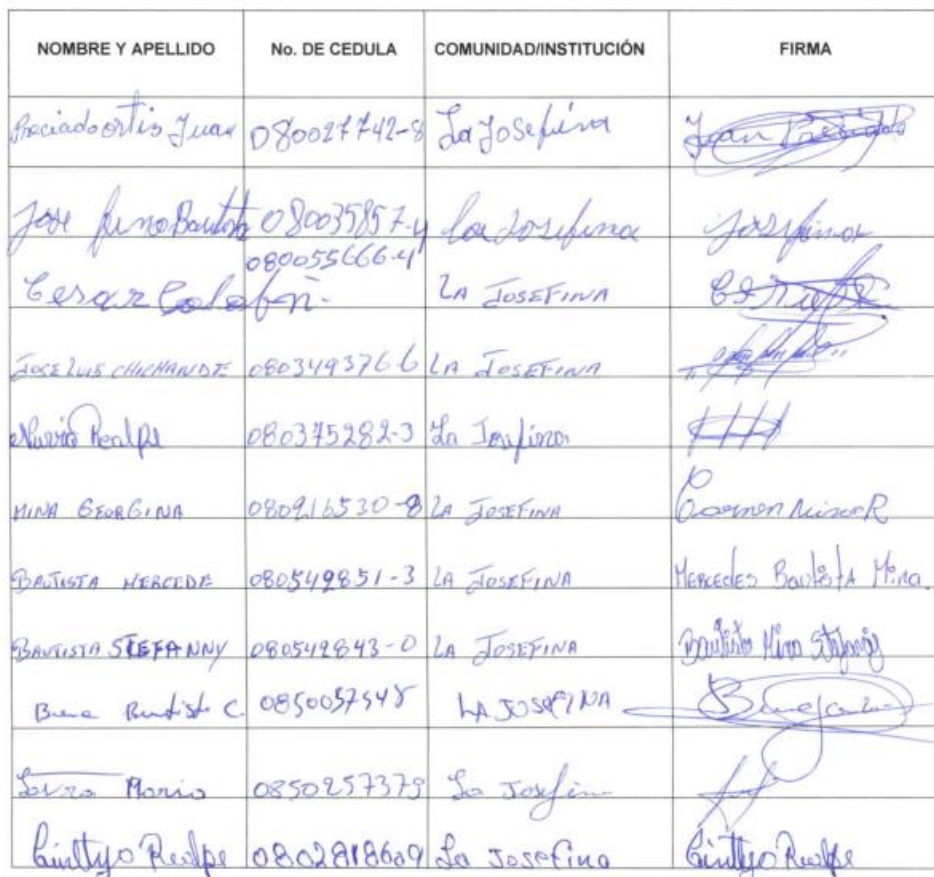 NOMBRE Y APELLIDO No. DE CEDULA COMUNIDAD/INSTITUCIÓN FIRMA
Preciado ortis Juan 080027742-8 La Josefina Juan Preciado
Jose Bautista 080035857-4 La Josefina Josefina
Cesar 080055666-4 LA JOSEFINA
JOSE LUIS CHICHANDE 080349376-6 LA JOSEFINA
Realpe 080375282-3 La Josefina
MINA GEORGINA 080216530-8 LA JOSEFINA Carmen Mina R
BAUTISTA MERCEDE 080549851-3 LA JOSEFINA Mercedes Bautista Mina.
BAUTISTA STEFANNY 080549843-0 LA JOSEFINA Bautista Mina Stefany
Bautista C. LA JOSEFINA
Mario 0850257379 La Josefina
Cinttya Realpe 0802818609 La Josefina Cinttya Realpe